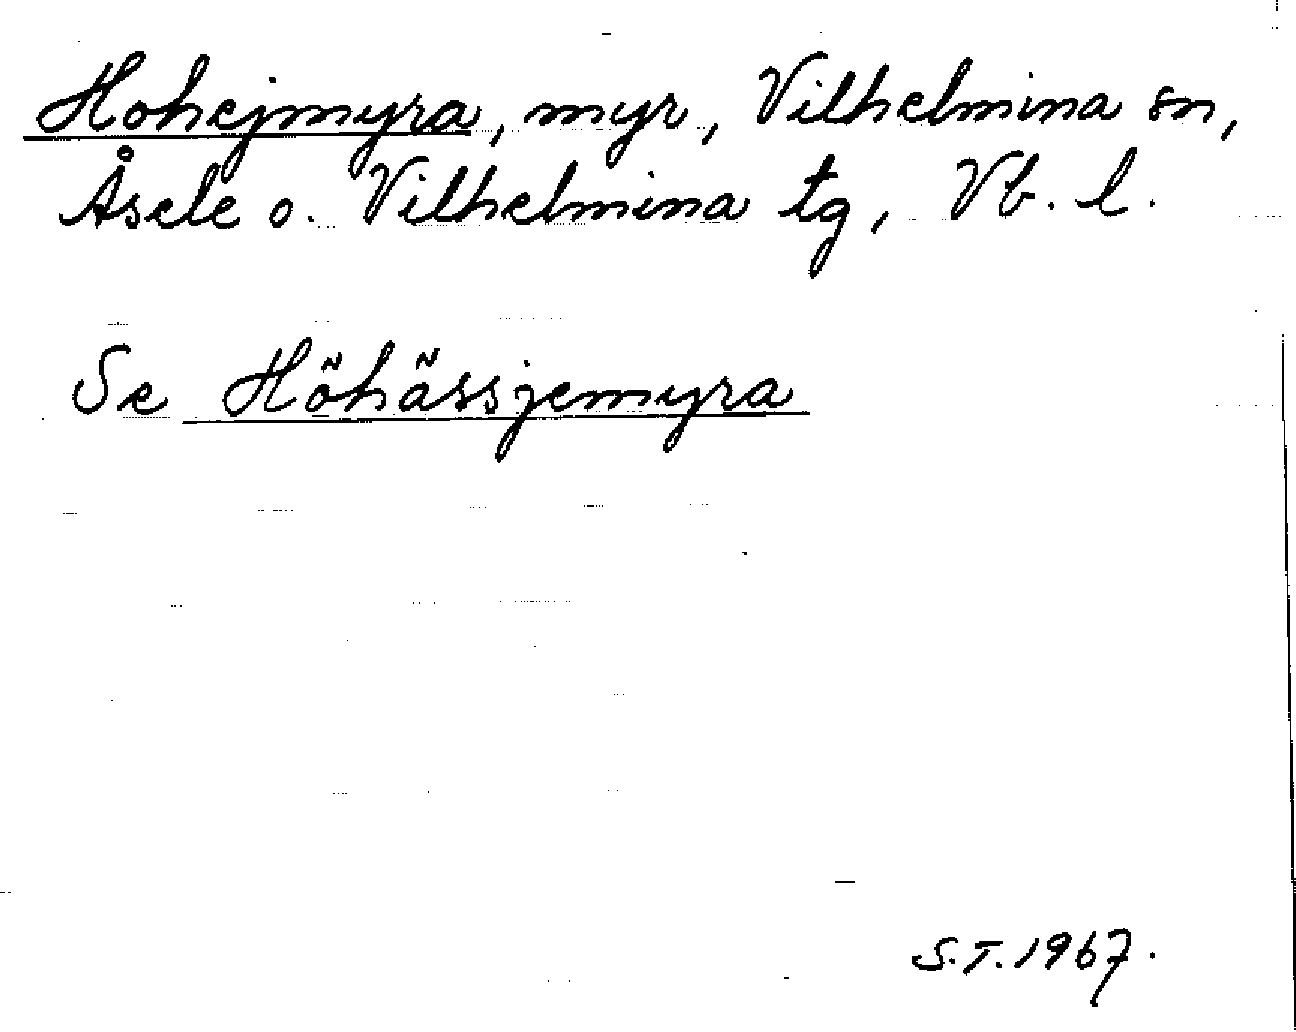 Hohejmyra, myr, Vilhelmina sn,
Åsele o. Vilhelmina tg, Vb. l.
Se Höhässjemyra
S.T. 1967.